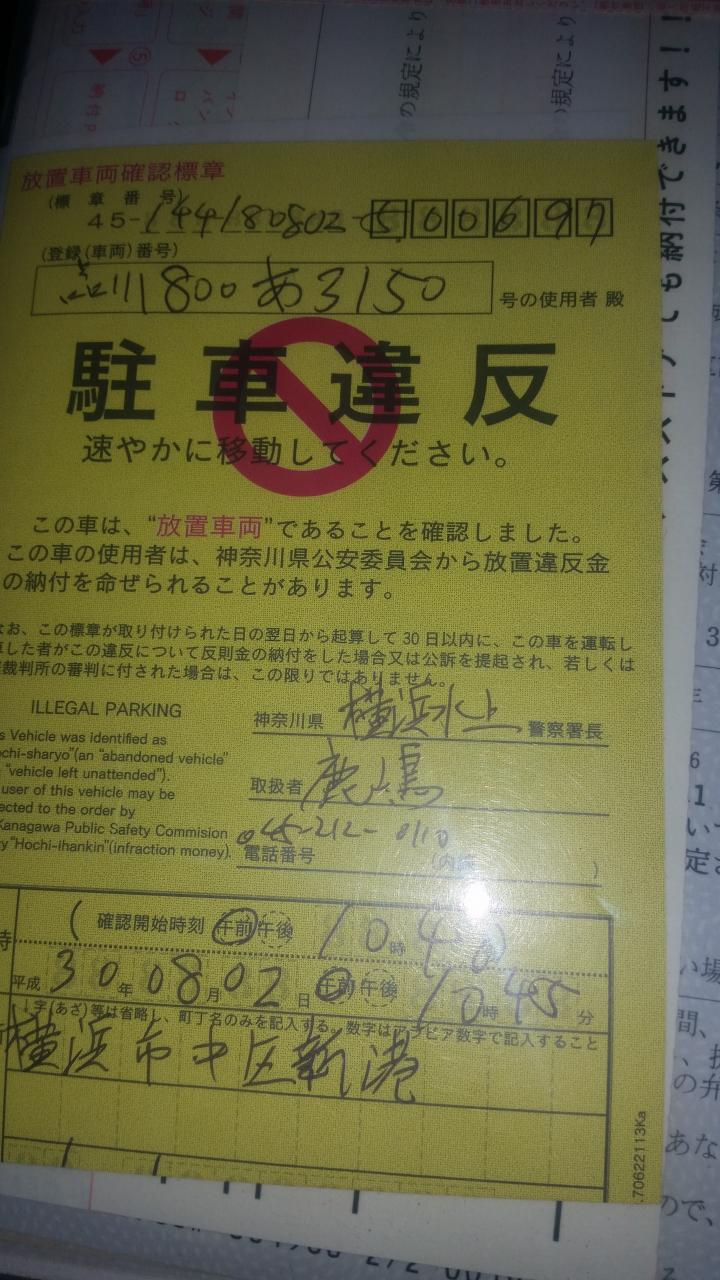 の規定により
の規定により
⑤
でも納付できます!!
放置車両確認標章
(標章番号)
45-144180802-500697
(登録(車両)番号)
品川800あ3150 号の使用者 殿
駐車違反
速やかに移動してください。
この車は、“放置車両”であることを確認しました。
この車の使用者は、神奈川県公安委員会から放置違反金
の納付を命ぜられることがあります。
なお、この標章が取り付けられた日の翌日から起算して30日以内に、この車を運転し
した者がこの違反について反則金の納付をした場合又は公訴を提起され、若しくは
裁判所の審判に付された場合は、この限りではありません。
ILLEGAL PARKING
s Vehicle was identified as
ochi-sharyo”(an “abandoned vehicle”
“vehicle left unattended”).
user of this vehicle may be
ected to the order by
Kanagawa Public Safety Commision
y “Hochi-ihankin”(infraction money).
神奈川県 横浜水上 警察署長
取扱者 鹿嶋
045-212-0110
電話番号 (内線 )
時 ( 確認開始時刻 午前 午後 10時40)
平成30年08月02日 午前 午後 10時45分
↓字(あざ)等は省略し、町丁名のみを記入する。数字はアラビア数字で記入すること
横浜市中区新港
.70622113Ka